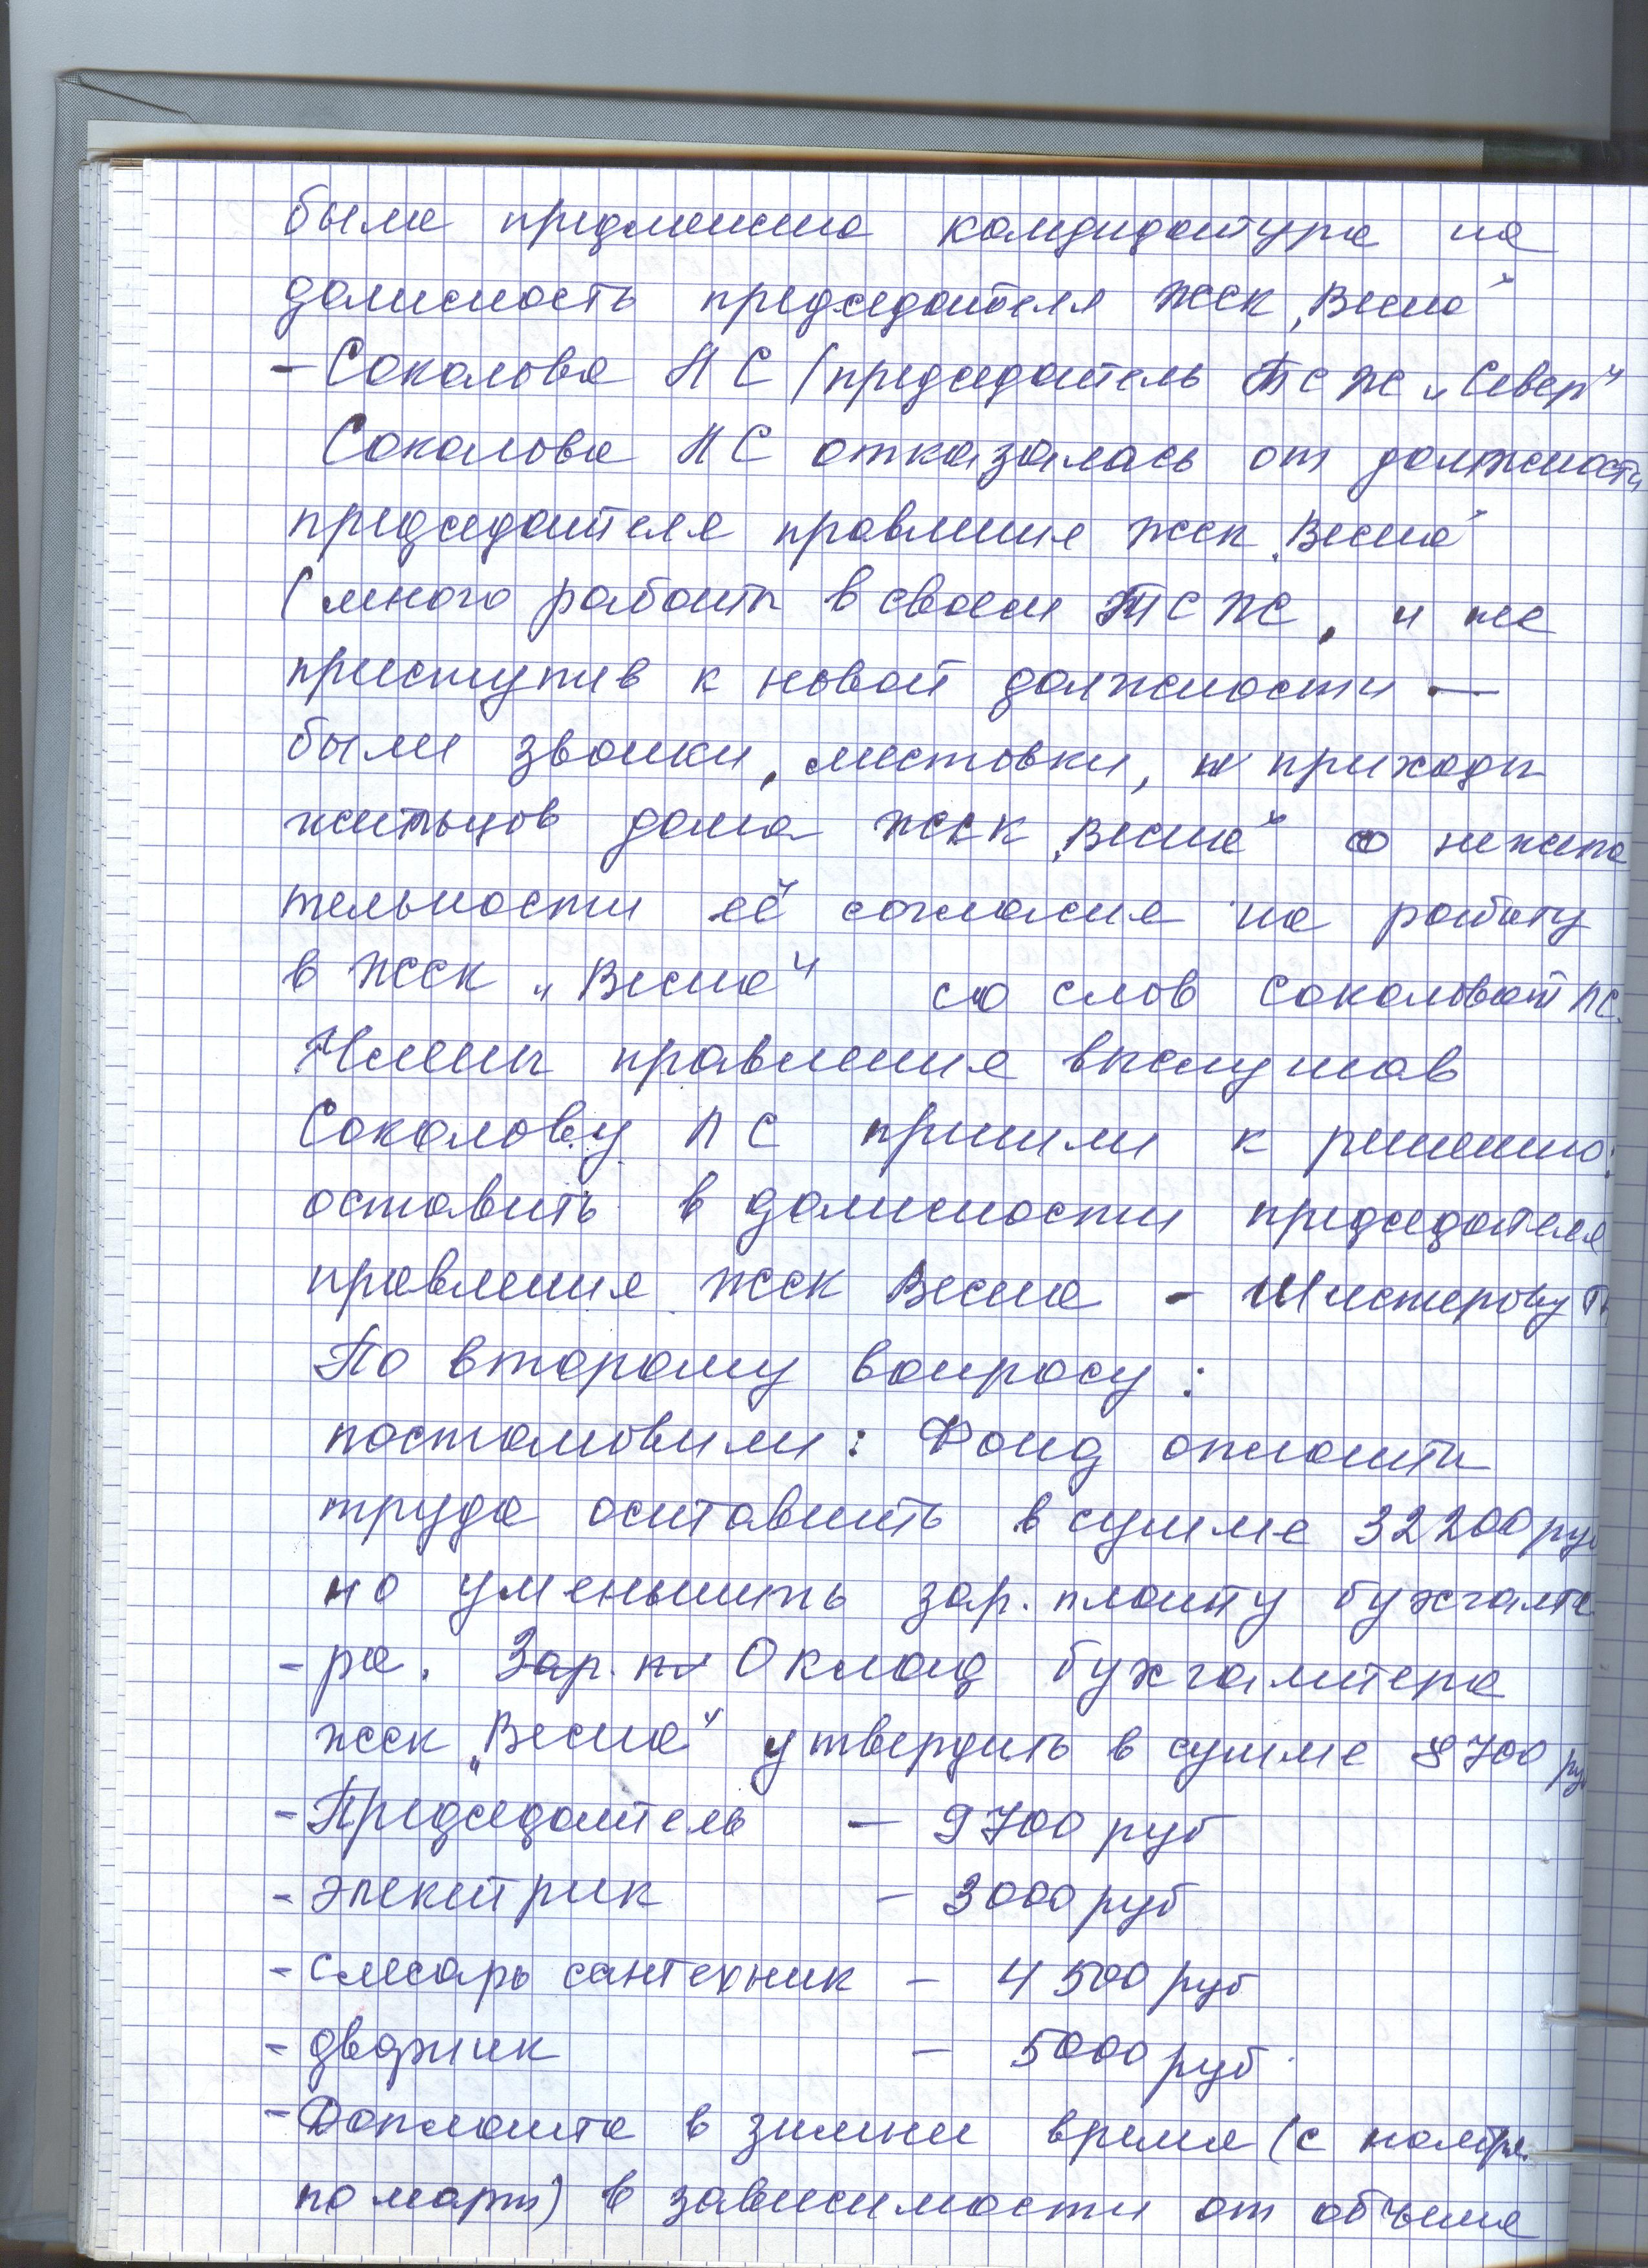 была предложена кандидатура на
должность председателя ЖСК „Весна"
– Соколова Н С (председатель ТСЖ „Север"
Соколова Н С отказалась от должности
председателя правления ЖСК „Весна"
(много работы в своем ТСЖ, и не
приступив к новой должности —
были звонки, листовки, и приходы
жильцов дома ЖСК „Весна" о нежела
тельности её согласия на работу
в ЖСК „Весна" со слов Соколовой НС.
Члены правления выслушав
Соколову НС пришли к решению:
оставить в должности председателя
правления ЖСК Весна - Шистерову
По второму вопросу:
постановили: Фонд оплаты
труда оставить в сумме 32200 руб
но уменьшить зар. плату бухгалте
- ра. Зар. пл Оклад бухгалтера
ЖСК „Весна" утвердить в сумме 8700 ру
- Председатель – 9700 руб
- электрик – 3000 руб
- слесарь сантехник – 4500 руб
- дворник – 5000 руб.
- Доплата в зимнее время (с ноября
по март) в зависимости от объёма